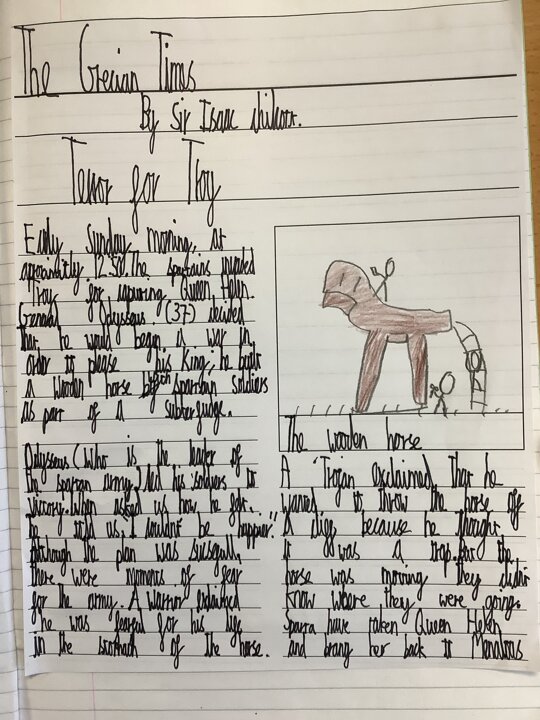 The Grecian Times
By Sir Isaac
Terror for Troy
Early Sunday morning, at
aproximitly 12:50. The spartains invaded
Troy for capuring Queen Helen.
General Odysseus. (37) decided
that he would begin a war in
order to please his King; he built
a wooden horse Spartan soldiers
as part of a
Odysseus (Who is the leader of
the spartan army) led his soldiers to
Victory. When asked us how he felt.
He told us, I couldn't be happier."
Although the plan was
there were moments of fear
for the army. A Warrior explained
he was fearful for his life
in the stomach of the horse.
The wooden horse
A Trojan exclaimed that he
wanted to throw the horse off
a cliff because he thought
it was a trap. For the
horse was moving they didn't
know where they were going.
have taken Queen Helen
and brang her back to